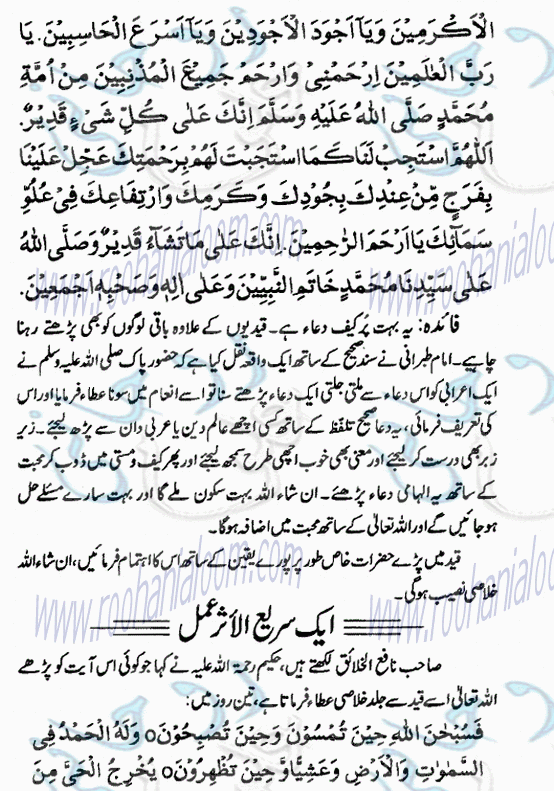 الْاَكْرَمِيْنَ وَيَآ اَجْوَدَ الْاَجْوَدِيْنَ وَيَآ اَسْرَعَ الْحَاسِبِيْنَ. يَا
رَبَّ الْعٰلَمِيْنَ اِرْحَمْنِيْ وَارْحَمْ جَمِيْعَ الْمُذْنِبِيْنَ مِنْ اُمَّةِ
مُحَمَّدٍ صَلَّى اللهُ عَلَيْهِ وَسَلَّمَ اِنَّكَ عَلٰى كُلِّ شَىْءٍ قَدِيْرٌ.
اَللّٰهُمَّ اسْتَجِبْ لَنَا كَمَا اسْتَجَبْتَ لَهُمْ بِرَحْمَتِكَ عَجِّلْ عَلَيْنَا
بِفَرَجٍ مِّنْ عِنْدِكَ بِجُوْدِكَ وَكَرَمِكَ وَارْتِفَاعِكَ فِىْ عُلُوِّ
سَمَآئِكَ يَا اَرْحَمَ الرّٰحِمِيْنَ. اِنَّكَ عَلٰى مَا تَشَآءُ قَدِيْرٌ وَصَلَّى اللهُ
عَلٰى سَيِّدِنَا مُحَمَّدٍ خَاتَمِ النَّبِيّٖنَ وَعَلٰى اٰلِهٖ وَصَحْبِهٖ اَجْمَعِيْنَ.
فائدہ: یہ بہت پُرکیف دعاء ہے۔ قیدیوں کے علاوہ باقی لوگوں کو بھی پڑھتے رہنا
چاہیے۔ امام طبرانی نے سند صحیح کے ساتھ ایک واقعہ نقل کیا ہے کہ حضور پاک صلی اللہ علیہ وسلم نے
ایک اعرابی کو اس دعاء سے ملتی جلتی ایک دعاء پڑھتے سنا تو اسے انعام میں سونا عطاء فرمایا اور اس
کی تعریف فرمائی، یہ دعا صحیح تلفظ کے ساتھ کسی اچھے عالم دین یا عربی دان سے پڑھ لیجئے۔ زیر
زبر بھی درست کر لیجئے اور معنی بھی خوب اچھی طرح سمجھ لیجئے اور پھر کیف و مستی میں ڈوب کر محبت
کے ساتھ یہ الہامی دعاء پڑھئے۔ ان شاء اللہ بہت سکون ملے گا اور بہت سارے مسئلے حل
ہو جائیں گے اور اللہ تعالیٰ کے ساتھ محبت میں اضافہ ہوگا۔
قید میں پڑے حضرات خاص طور پر پورے یقین کے ساتھ اس کا اہتمام فرمائیں، ان شاء اللہ
خلاصی نصیب ہوگی۔
ایک سریع الأثر عمل
صاحب نافع الخلائق لکھتے ہیں، حکیم رحمۃ اللہ علیہ نے کہا جو کوئی اس آیت کو پڑھے
اللہ تعالیٰ اسے قید سے جلد خلاصی عطاء فرماتا ہے، تین روز میں:
فَسُبْحٰنَ اللهِ حِيْنَ تُمْسُوْنَ وَحِيْنَ تُصْبِحُوْنَ o وَلَهُ الْحَمْدُ فِى
السَّمٰوٰتِ وَالْاَرْضِ وَعَشِيًّا وَّحِيْنَ تُظْهِرُوْنَ o يُخْرِجُ الْحَىَّ مِنَ